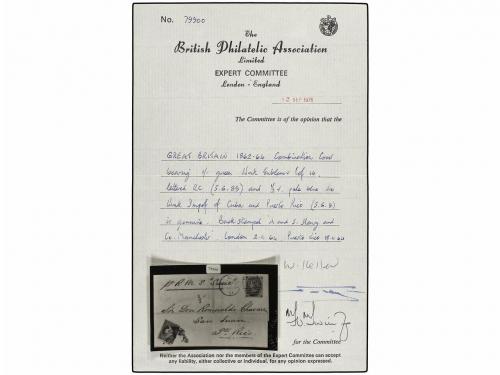 No. 79900
The
British Philatelic Association
Limited
EXPERT COMMITTEE
London - England
12 SEP 1975
The Committee is of the opinion that the
GREAT BRITAIN 1862-64 Combination Cover
bearing 1/- green
lettered RC (S.G. 89) and ½ r. pale blue
of Cuba and Puerto Rico (S.G. 8)
is genuine. Backstamped and S. Henry and
Co. Manchester London 2-4-64 Puerto Rico 18-4-64
for the Committee
Neither the Association nor the members of the Expert Committee can accept
any liability, either collective or individual, for any opinion expressed.